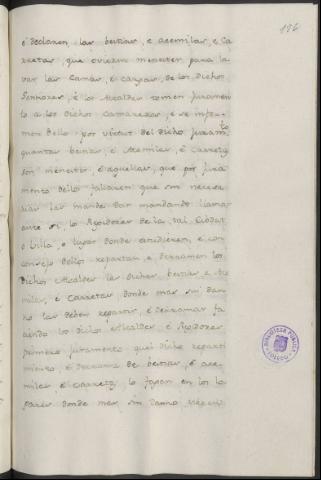 186
é declaren las bestias, é acemilas, é Ca
rretas, que ovieren menester para la
var las Camas, é cargas de los dichos
Señores, é los Alcaldes tomen jurame
to a los dichos Camareros, é se infor
men dello por virtud del dicho juramto
quantas bestias, é Acemilas, é Carretas
son menester, é aquellas, que por jura
mento dello fallaren que son necesa
rias las mande dar mandando llamar
ante si, los Regidores de la tal Ciudad
o Villa, o lugar donde acudieren, é con
consejo dellos repartan, é derramen los
dichos Alcaldes las dichas bestias, é Ace
milas, é Carretas donde mas sin dan
no las deben repartir, é derramar fa
ciendo los dichos Alcaldes, é Regidores
primero juramento quel dicho reparti
miento, é derrama de bestias, é ace
milas é Carretas, lo fagan en los lu
gares donde mas sin danno
BIBLIOTECA PUBLICA
TOLEDO